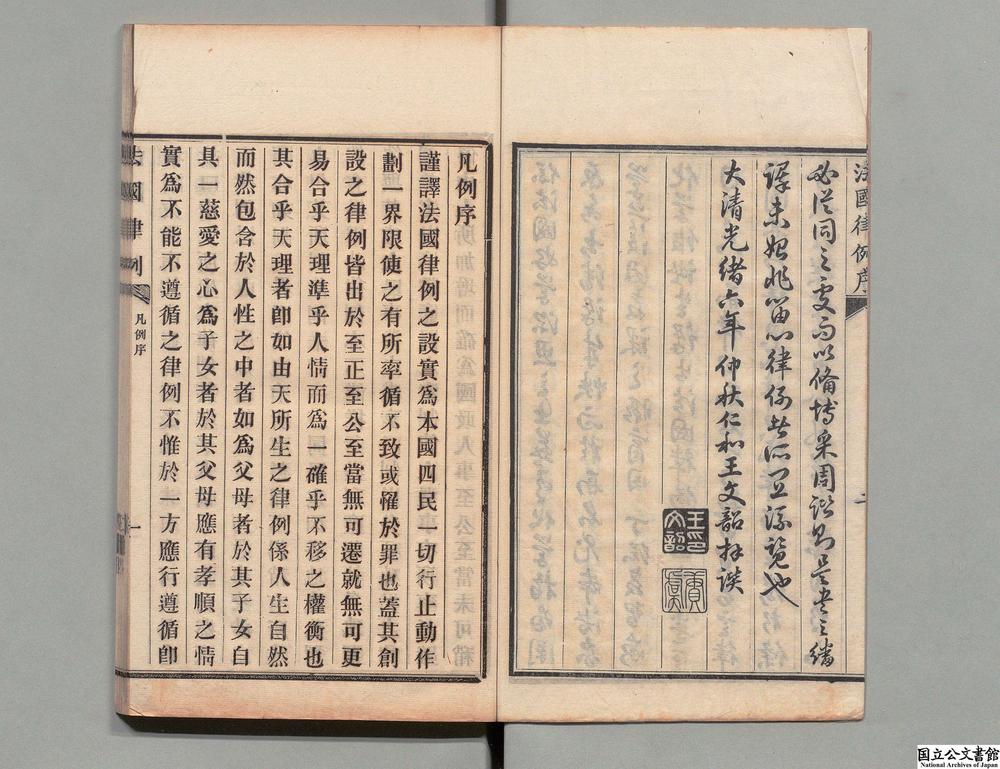 法國律例序
必從同之處而以備博采周諮則是書之繙
譯未始非留心律例者所宜流覽也
大清光緒六年仲秋仁和王文韶拜譔
王文韶印
凡例序
謹譯法國律例之設實爲本國四民一切行止動作
劃一界限使之有所率循不致或罹於罪也蓋其創
設之律例皆出於至正至公至當無可遷就無可更
易合乎天理準乎人情而爲一確乎不移之權衡也
其合乎天理者卽如由天所生之律例係人生自然
而然包含於人性之中者如爲父母者於其子女自
具一慈愛之心爲子女者於其父母應有孝順之情
實爲不能不遵循之律例不惟於一方應行遵循卽
法國律例
凡例序
一
国立公文書館
National Archives of Japan